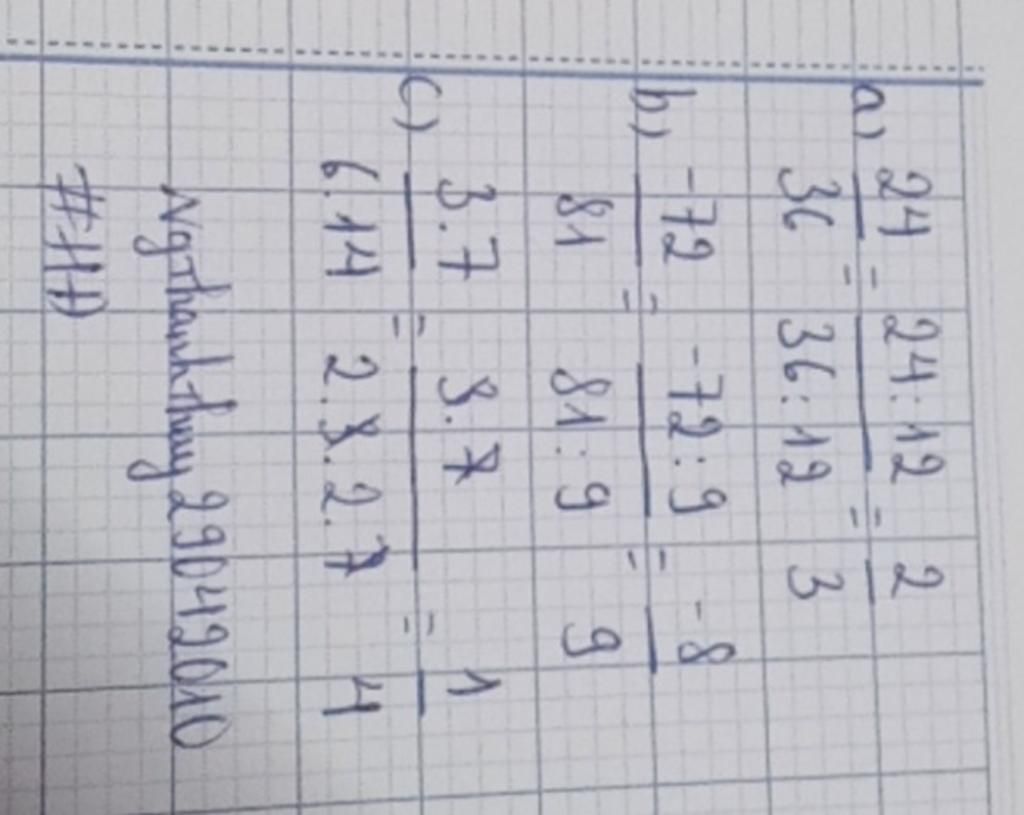 a) 24/36 = 24:12/36:12 = 2/3
b) -72/81 = -72:9/81:9 = -8/9
c) 3.7/6.14 = 3.7/2.3.2.7 = 1/4
Ngthanhthuy29042010